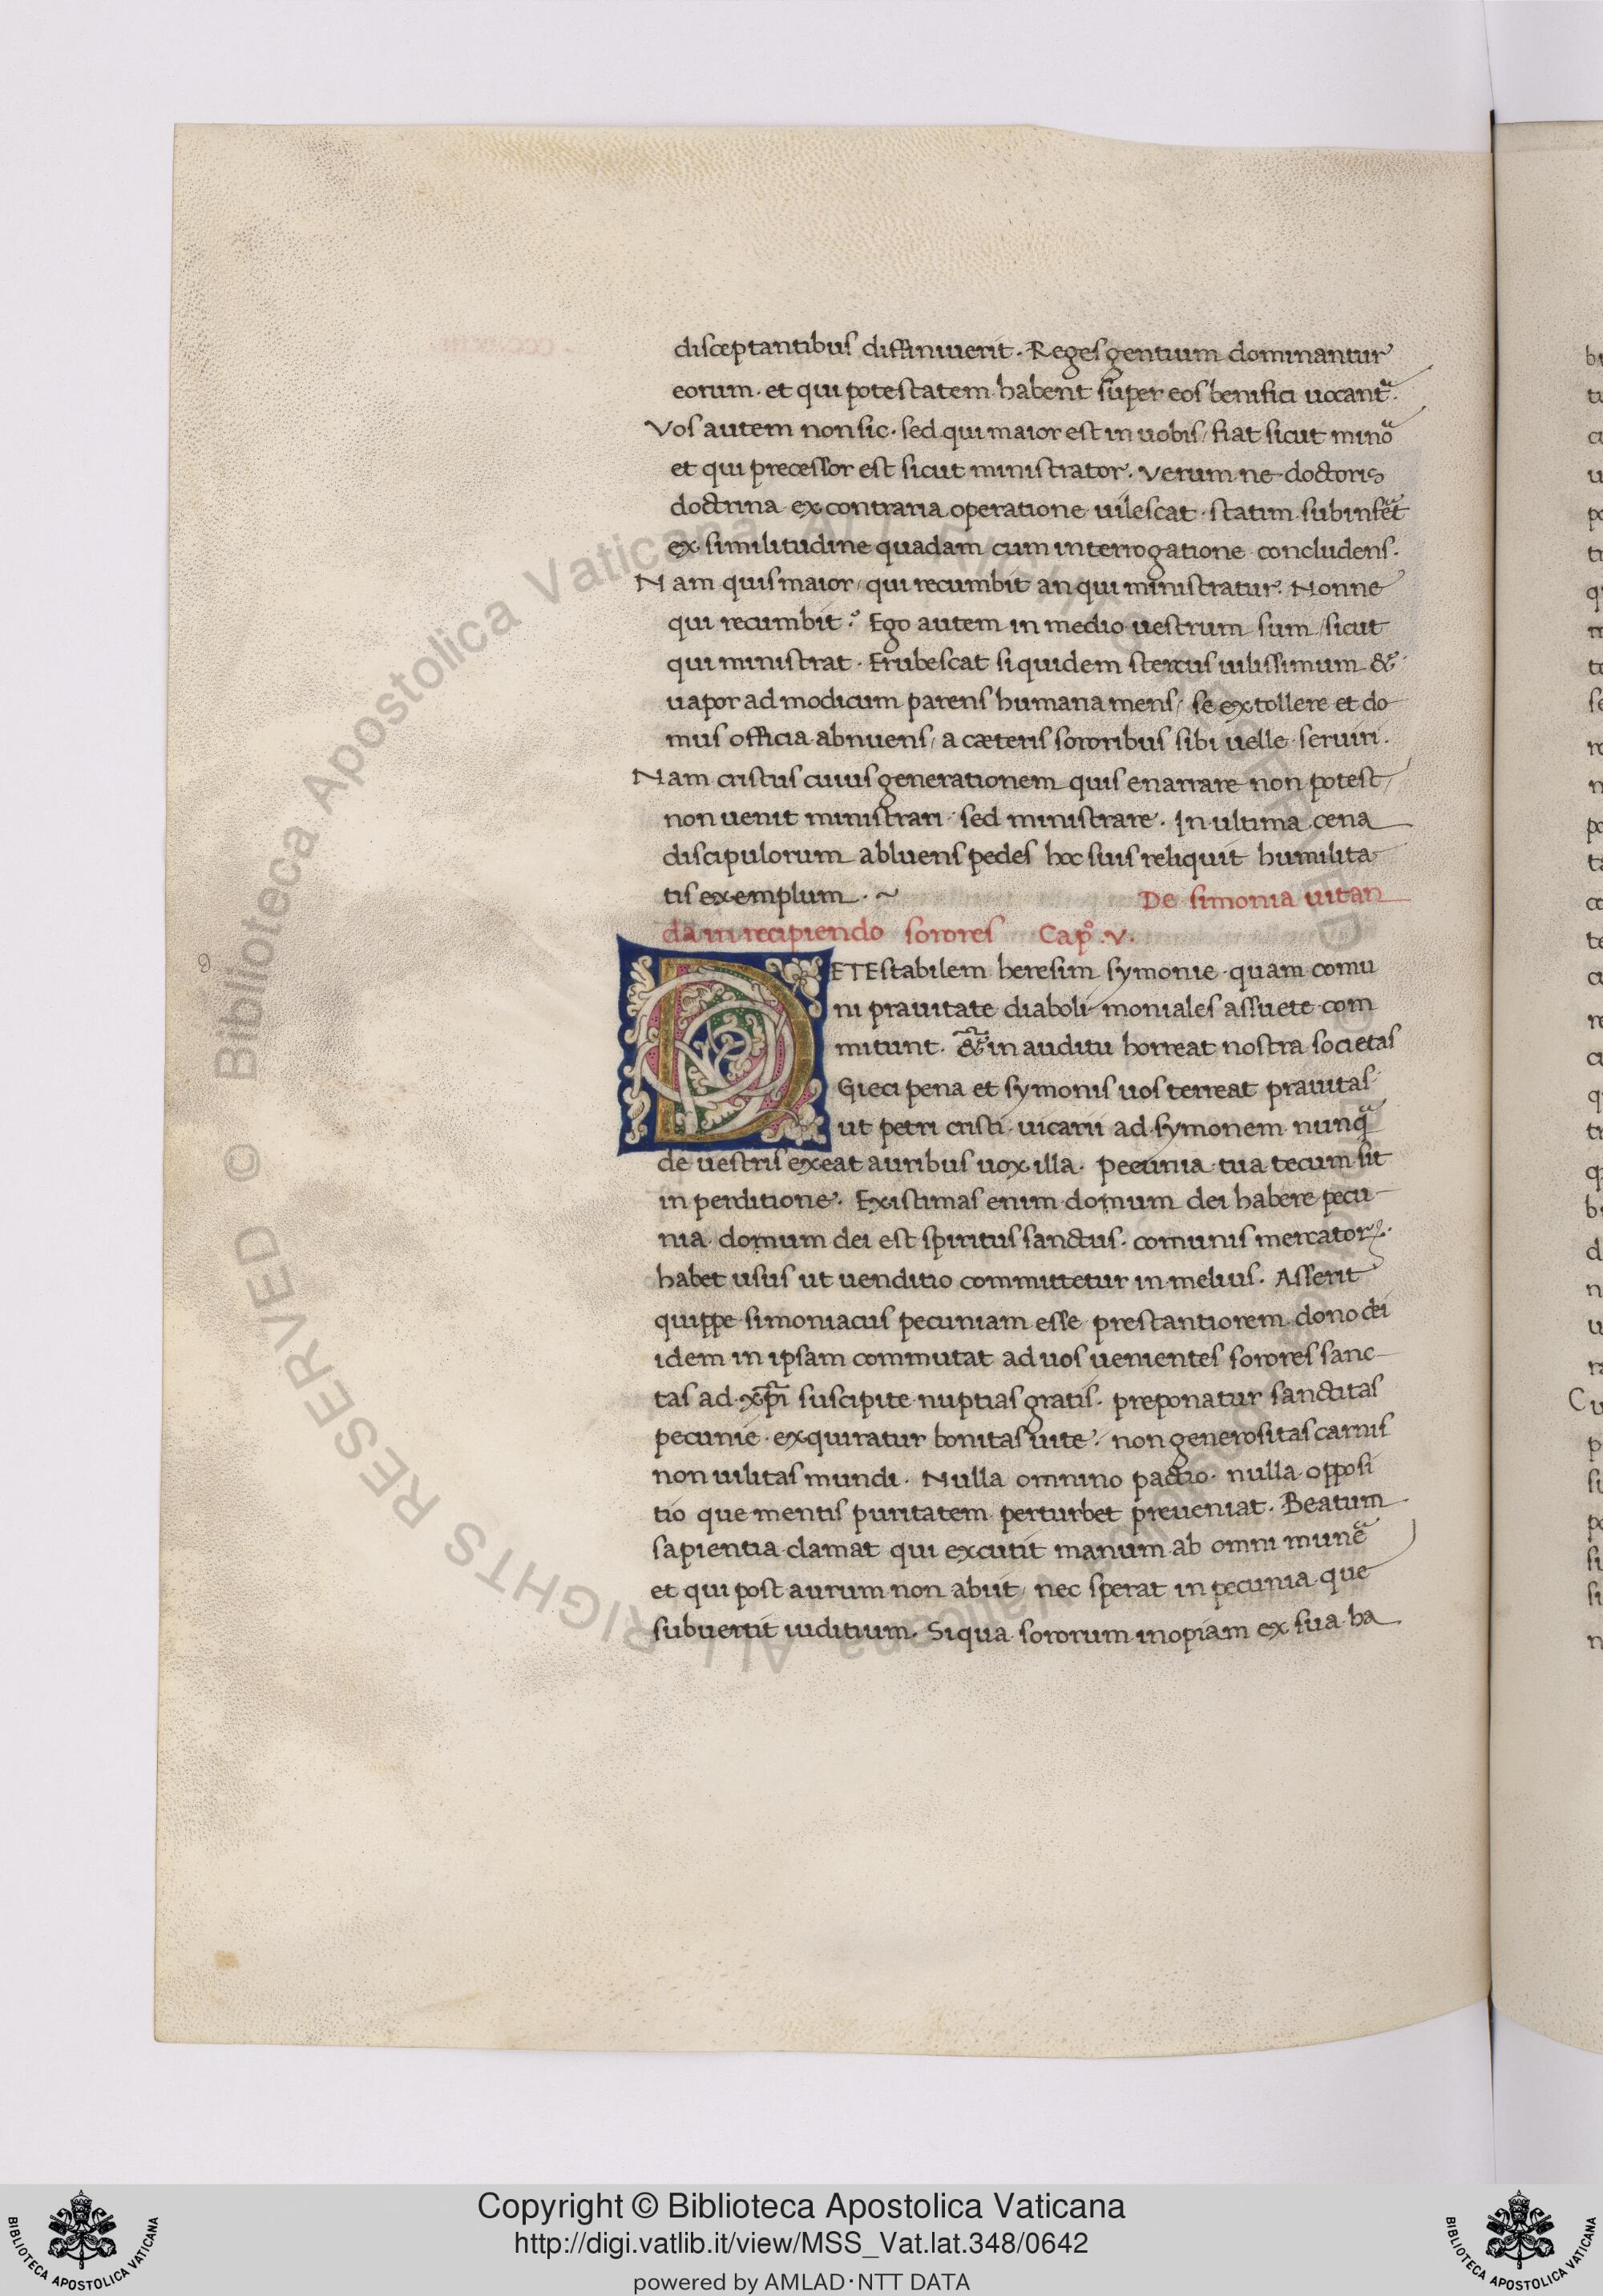 disceptantibus diffiniuerit. Reges gentium dominantur
eorum. et qui potestatem habent super eos benifici uocant᷑.
Vos autem non sic. sed qui maior est in uobis / fiat sicut mino᷑
et qui precessor est sicut ministrator. Verum ne doctoris
doctrina ex contraria operatione uilescat. statim subinfe᷑t
ex similitudine quadam cum interrogatione concludens.
Nam quis maior / qui recumbit an qui ministratur. Nonne
qui recumbit? Ego autem in medio uestrum sum / sicut
qui ministrat. Erubescat siquidem stercus uilissimum &
uapor ad modicum parens humana mens / se extollere et do
mus officia abnuens / a cæteris sororibus sibi uelle seruiri.
Nam cristus cuius generationem quis enarrare non potest /
non uenit ministrari sed ministrare. In ultima cena
discipulorum abluens pedes hoc suis reliquit humilita
tis exemplum. ~ De simonia uitan
da in recipiendo sorores Cap.º v.
DETEstabilem heresim symonie quam comu
ni prauitate diaboli moniales assuete com
mitunt. & in auditu horreat nostra societas
Gieci pena et symonis uos terreat prauitas
ut petri cristi uicarii ad symonem nunq̄
de uestris exeat auribus uox illa. pecunia tua tecum sit
in perditione. Existimas enim domum dei habere pecu
nia domum dei est spiritus sanctus. comunis mercatorꝝ.
habet usus ut uenditio commutetur in melius. Asserit
quippe simoniacus pecuniam esse prestantiorem dono dei
idem in ipsam commutat ad uos uenientes sorores sanc
tas ad xp̄i suscipite nuptias gratis. preponatur sanctitas
pecunie. exquiratur bonitas uite. non generositas carnis
non uilitas mundi. Nulla omnino pactio. nulla opposi
tio que mentis puritatem perturbet preueniat. Beatum
sapientia clamat qui excutit manum ab omni mune᷑
et qui post aurum non abiit / nec sperat in pecunia que
subuertit iuditium. Siqua sororum inopiam ex sua ha
Copyright © Biblioteca Apostolica Vaticana
http://digi.vatlib.it/view/MSS_Vat.lat.348/0642
powered by AMLAD·NTT DATA